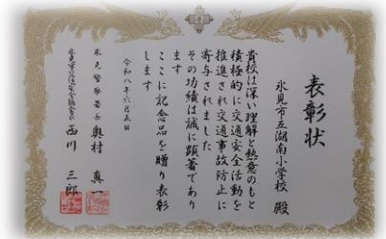 表彰状
氷見市立湖南小学校 殿
貴校は深い理解と熱意のもと
積極的に交通安全活動を
推進され交通事故防止に
寄与されました
その功績は誠に顕著であり
ます
ここに記念品を贈り表彰
します
令和八年六月五日
氷見警察署長 奥村 真一
氷見市交通安全協会長 西川 三郎